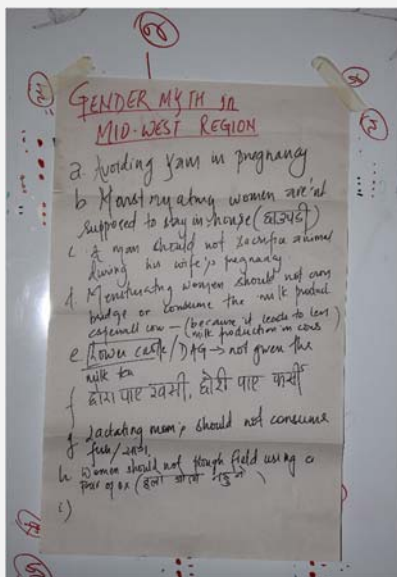 GENDER MYTH in
MID-WEST REGION
a. Avoiding Yam in pregnancy
b Menstruating women are'nt
supposed to stay in house (छाउपडी)
c. A man should not sacrifice animal
during his wife's pregnancy
d. Menstruating women should not cross
bridge or consume the milk product
especially cow – (because it leads to less
milk production in cows)
e Lower caste / DAG → not given the
milk tea
f छोरा पाए खसी, छोरी पाए फर्सी
g Lactating mom's should not consume
fish/साग.
h Women should not plough field using a
pair of ox (हलो जोत्न नहुने)
i)